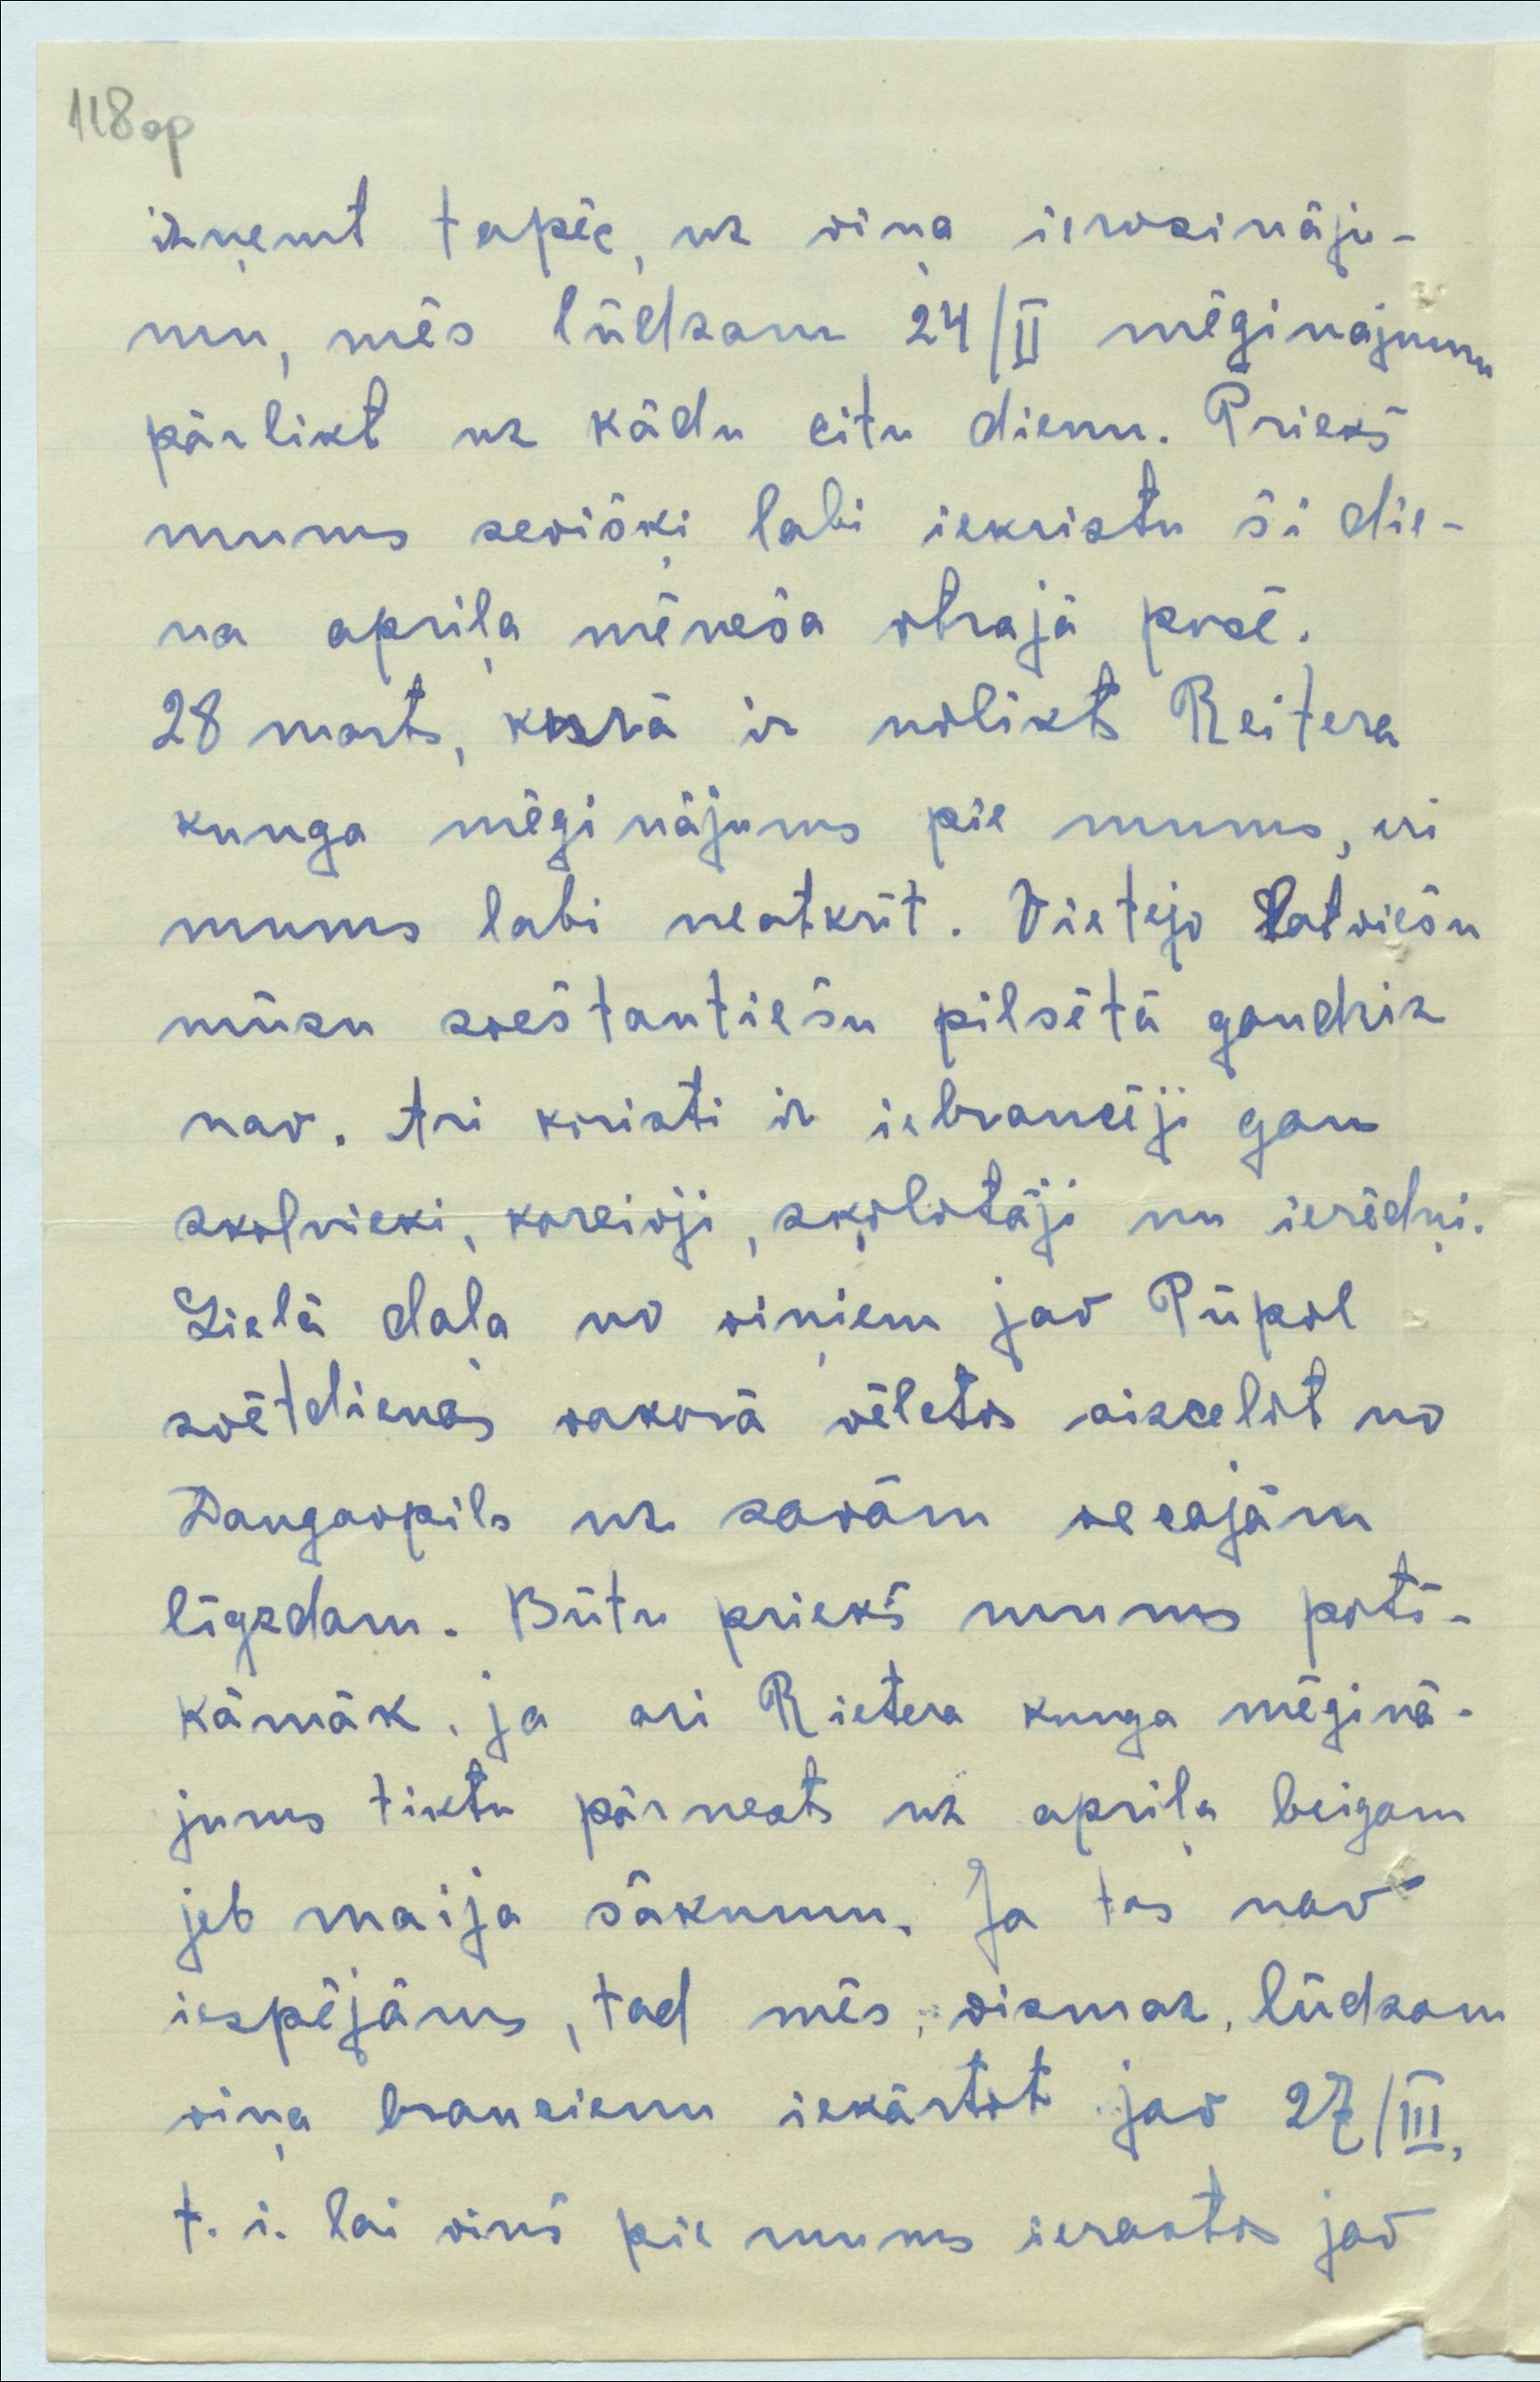 118op
izņemt tapēc, uz viņa ierosināju-
mu, mēs lūdzam 24/II mēginajumu
pārlikt uz kādu citu dienu. Priekš
mums sevišķi labi iekristu ši die-
na apriļa mēneša otrajā pusē.
28 marts, kurā ir nolikts Reitera
kunga mēginājums pie mums, ari
mums labi neatkrīt. Vietejo latviešu
mūsu svēštautiešu pilsētā gandriz
nav. Ari koristi ir iebraucēji gan
skolnieki, kareivji, skolotāji un ierēdņi.
Lielā daļa no viņiem jav Pūpol
svētdienas vakarā vēletos aizcelot no
Daugavpils uz savām vecajām
līgzdam. Būtu priekš mums patī-
kāmāk, ja ari Rietera kunga mēginā-
jums tiktu pārnests uz apriļa beigam
jeb maija sākumu. Ja tas nav
iespējāms, tad mēs, vismaz, lūdzam
viņa braucienu iekārtot jav 27/III,
t. i. lai viņš pie mums ierastos jav